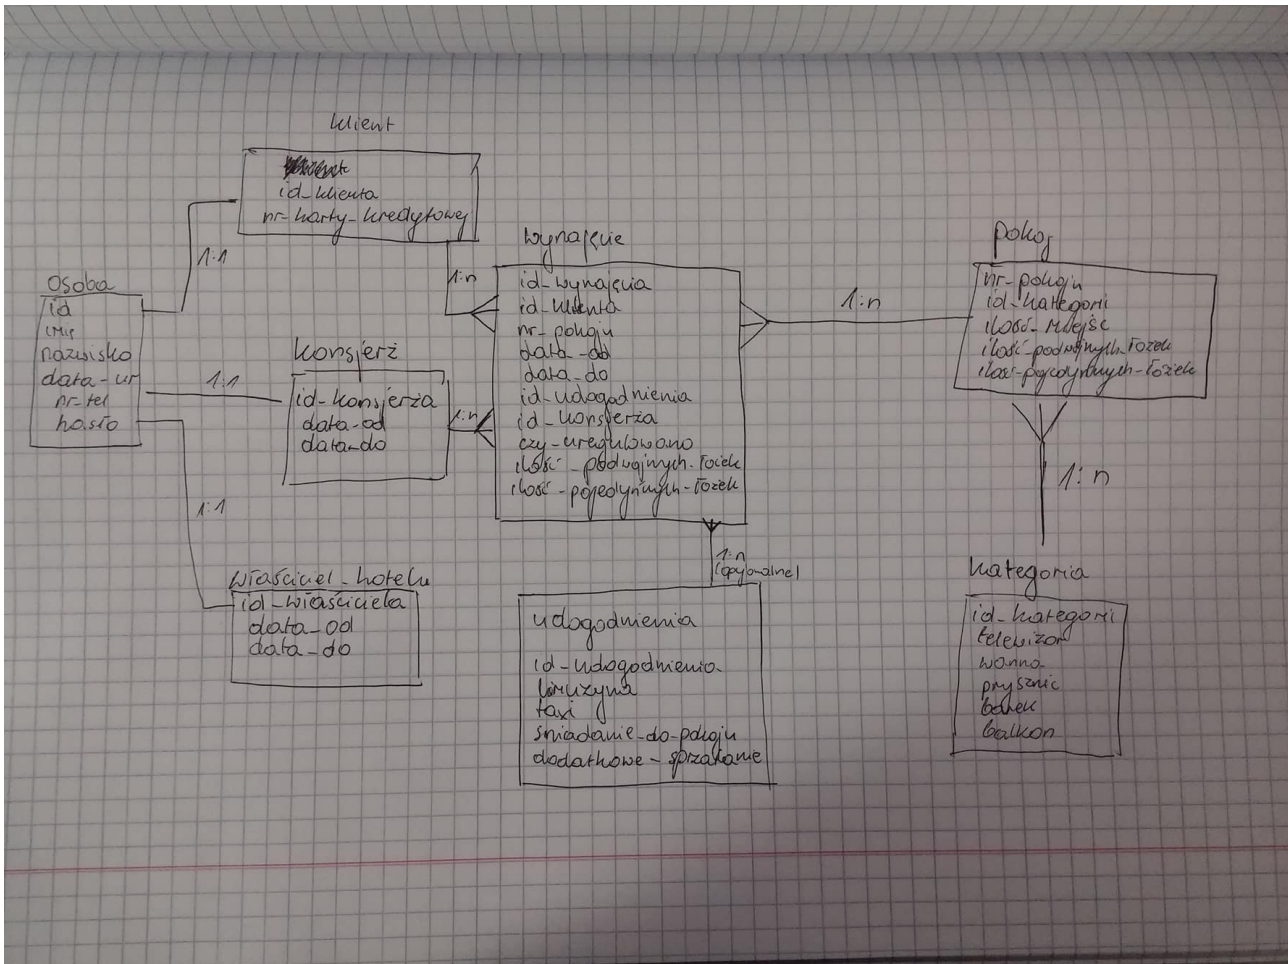 klient
id_klienta
nr_karty_kredytowej
1:1
osoba
id
imię
nazwisko
data_ur
nr_tel
hasło
1:1
1:n
konsjerż
id_konsjerża
data_od
data_do
1:n
1:1
właściciel_hotelu
id_właściciela
data_od
data_do
wynajęcie
id_wynajęcia
id_klienta
nr_pokoju
data_od
data_do
id_udogodnienia
id_konsjerża
czy_uregulowano
ilość_podwójnych_łóżek
ilość_pojedynczych_łóżek
1:n
(opcjonalne)
udogodnienia
id_udogodnienia
limuzyna
taxi
śniadanie_do_pokoju
dodatkowe_sprzątanie
1:n
pokoj
nr_pokoju
id_kategorii
ilość_miejsc
ilość_podwójnych_łóżek
ilość_pojedynczych_łóżek
1:n
kategoria
id_kategorii
telewizor
wanna
prysznic
barek
balkon